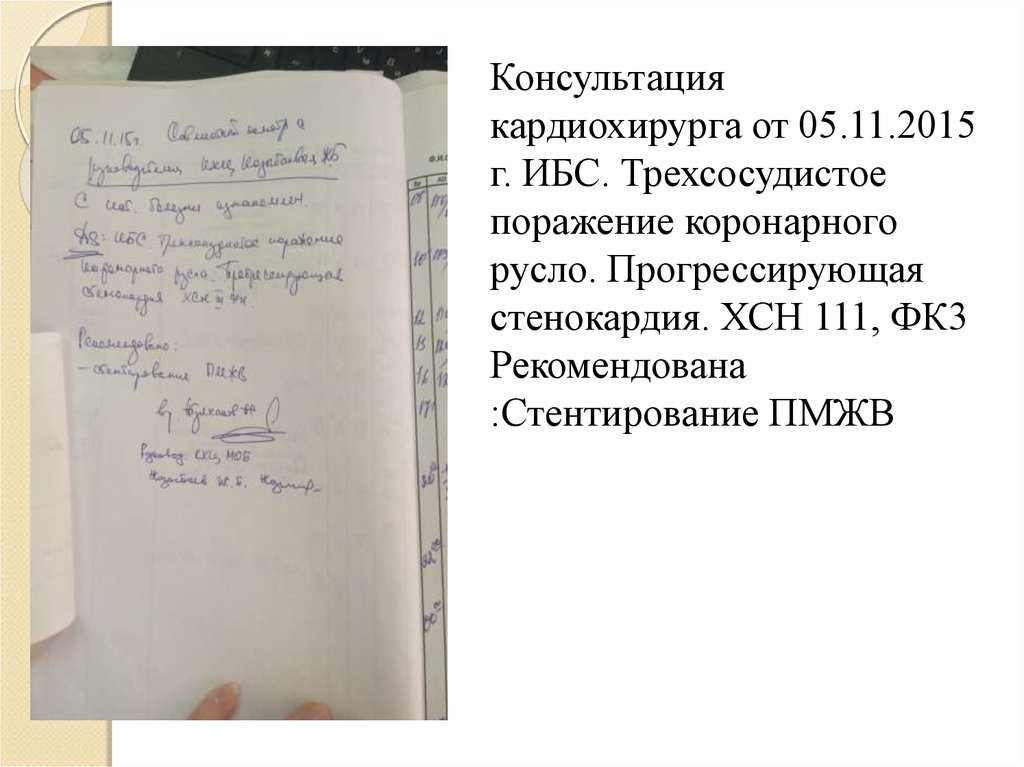 05.11.15г. Совместный осмотр с
руководителем КХЦ
С ист. болезни ознакомлен.
Ds: ИБС. Трехсосудистое поражение
коронарного русла. Прогрессирующая
стенокардия ХСН III ФК.
Рекомендовано:
– стентирование ПМЖВ
вр.
Руковод. КХЦ МОБ
Ж.Б.
Консультация
кардиохирурга от 05.11.2015
г. ИБС. Трехсосудистое
поражение коронарного
русло. Прогрессирующая
стенокардия. ХСН 111, ФК3
Рекомендована
:Стентирование ПМЖВ